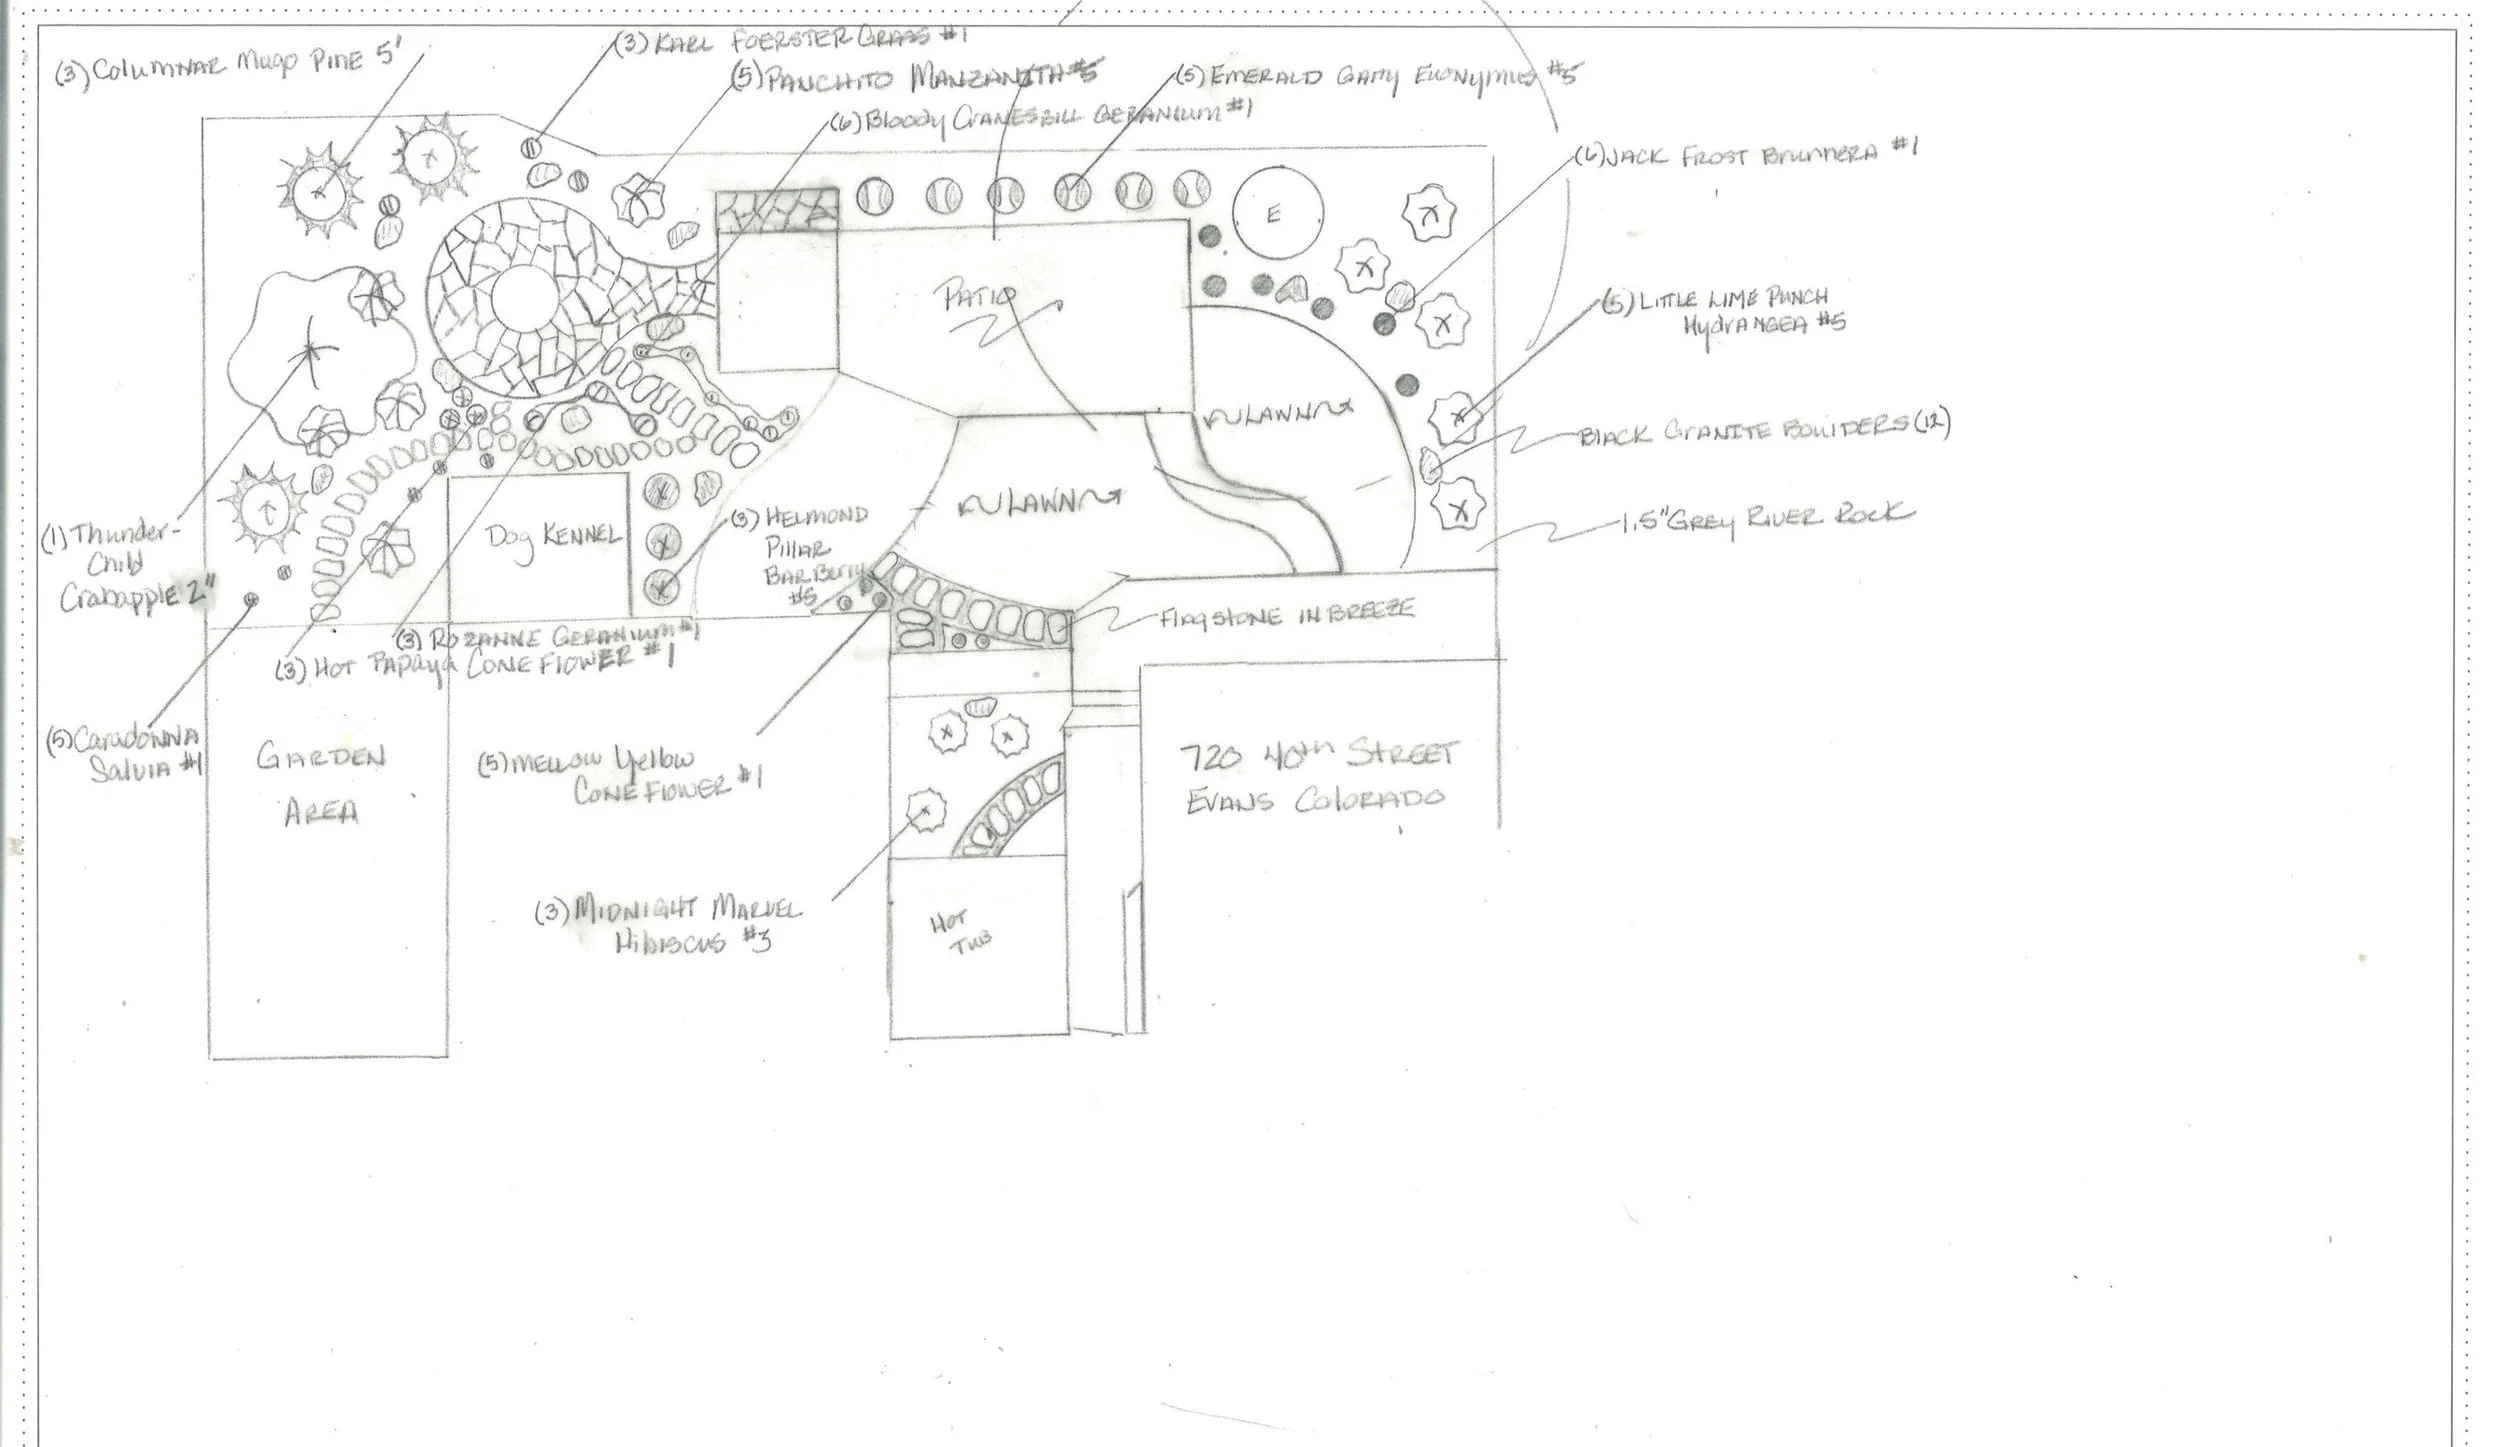 (3) Columnar Mugo Pine 5'
(3) Karl Foerster Grass #1
(5) Panchito Manzanita #5
(6) Bloody Cranesbill Geranium #1
(5) Emerald Gaity Euonymus #5
(6) Jack Frost Brunnera #1
E
Patio
(5) Little Lime Punch
Hydrangea #5
Lawn
Black Granite Boulders (12)
Lawn
1.5" Grey River Rock
Dog Kennel
(3) Helmond
Pillar
Barberry
#5
(1) Thunder-
Child
Crabapple 2"
Flagstone in Breeze
(3) Rozanne Geranium #1
(3) Hot Papaya Cone Flower #1
(5) Caradonna
Salvia #1
Garden
Area
(5) Mellow Yellow
Cone Flower #1
720 40th Street
Evans Colorado
(3) Midnight Marvel
Hibiscus #3
Hot
Tub